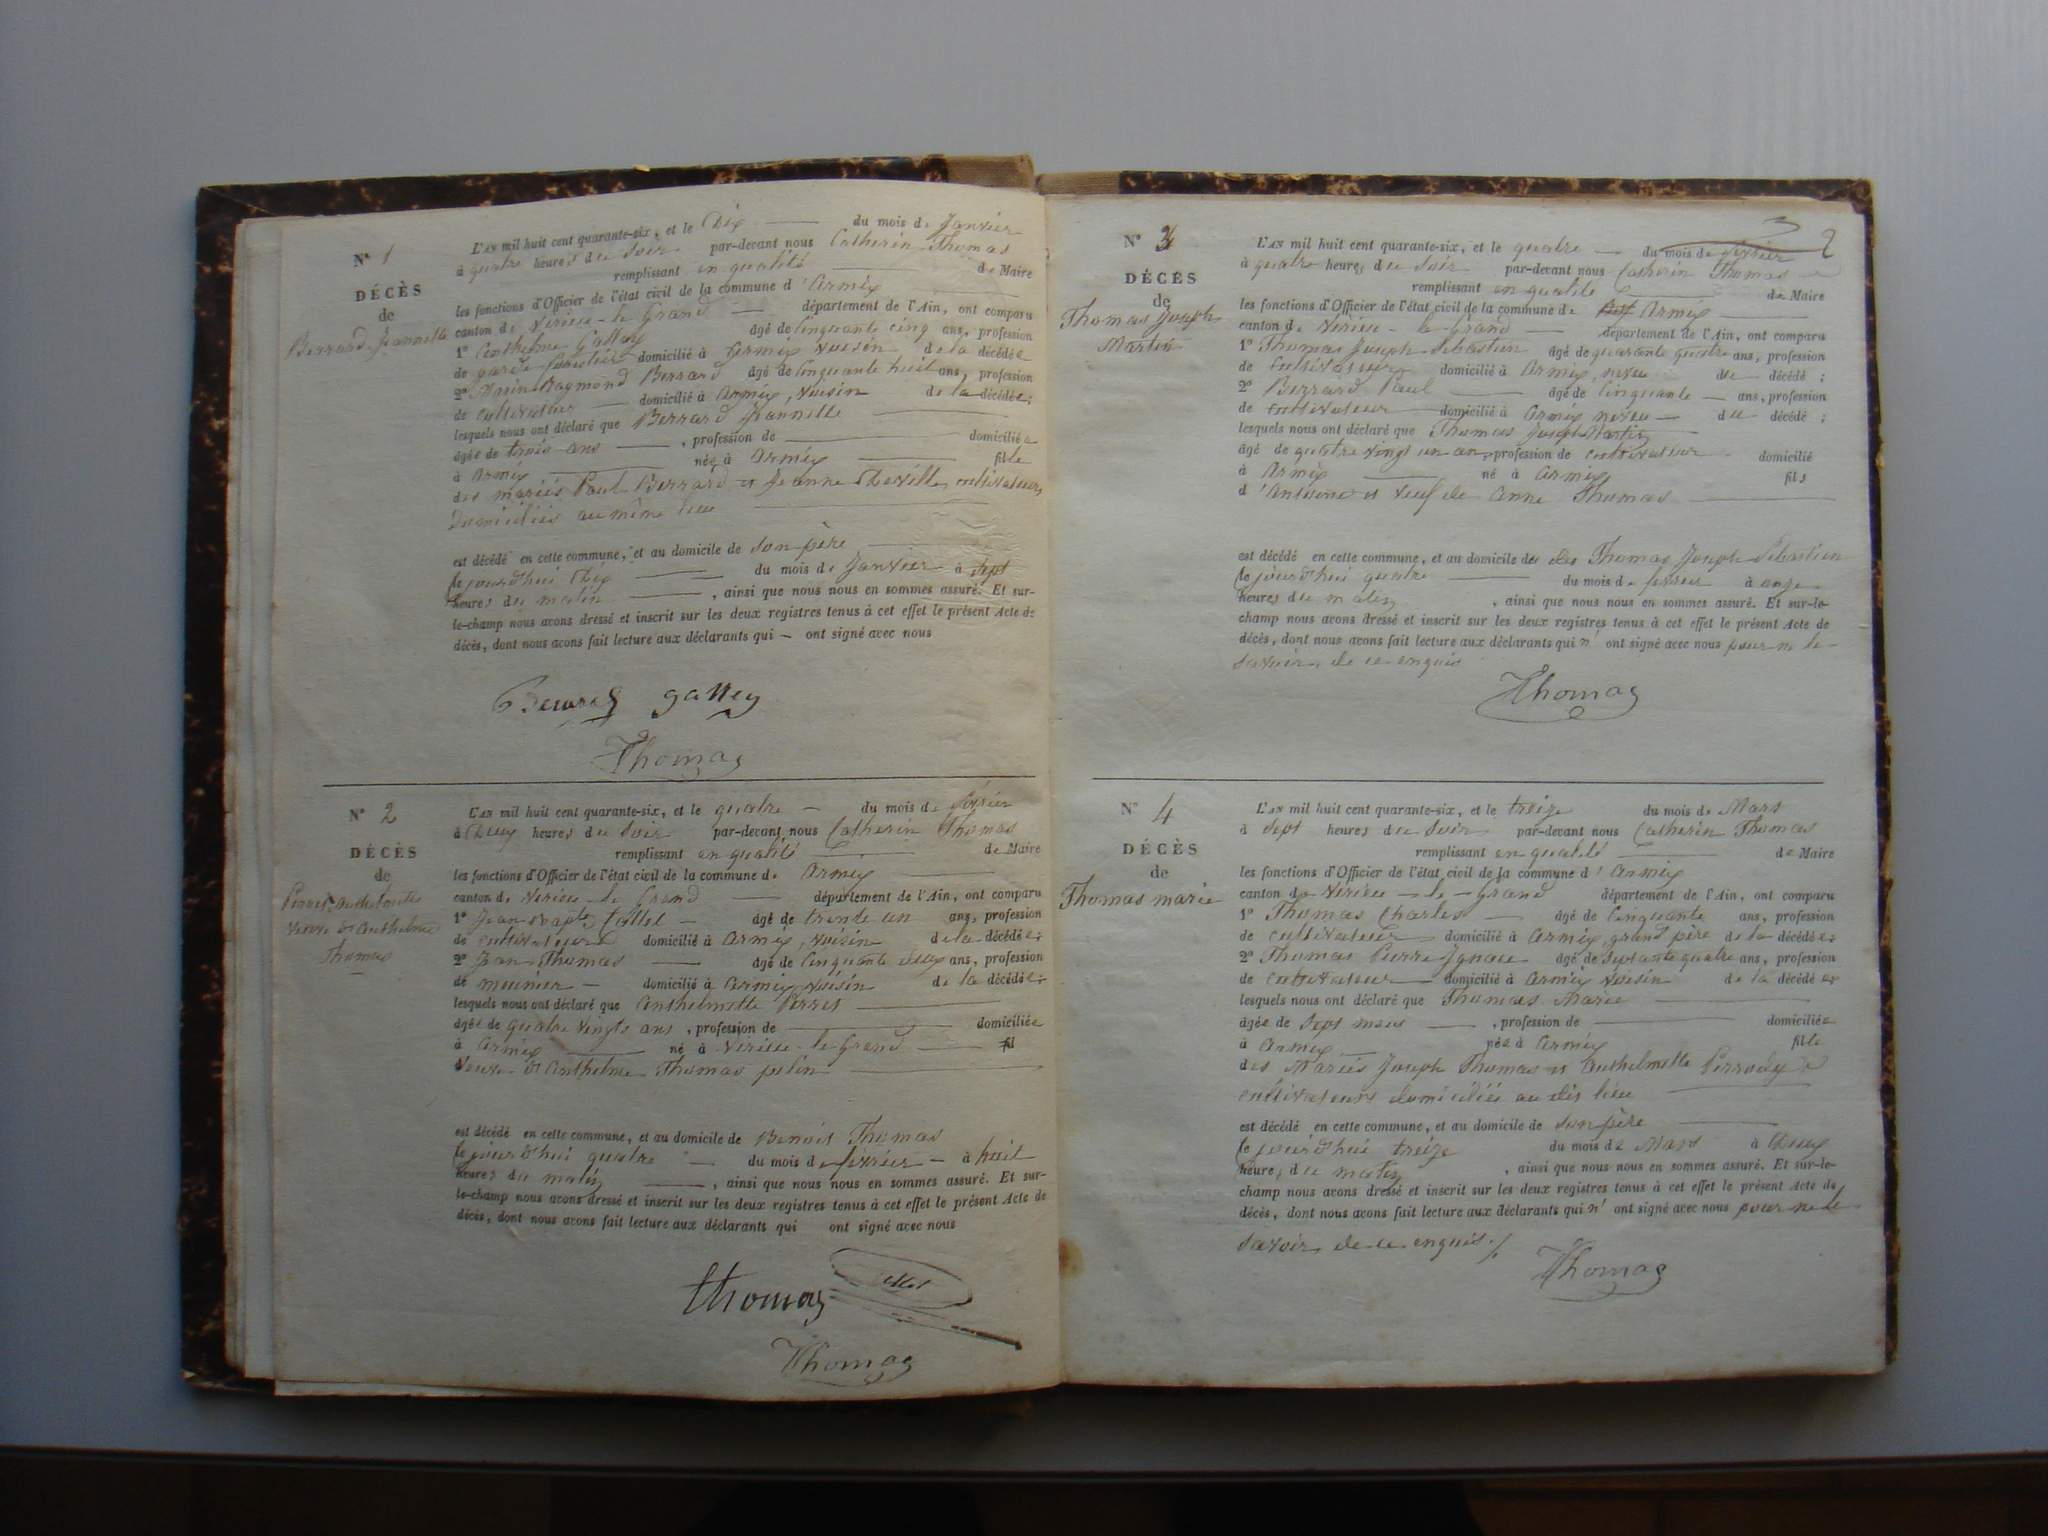 N° 1
DÉCÈS
de
Berrard Jeannette
L'AN mil huit cent quarante-six, et le Dix du mois de Janvier
à quatre heures du soir par-devant nous Catherin Thomas
remplissant en qualité de Maire
les fonctions d'Officier de l'état civil de la commune d'Armix
canton de Virieu-le-Grand département de l'Ain, ont comparu
1° Anthelme Galley âgé de Cinquante cinq ans, profession
de garde forestier domicilié à Armix voisin de la décédée
2° Marin Raymond Berrard âgé de Cinquante huit ans, profession
de cultivateur domicilié à Armix, voisin de la décédée;
lesquels nous ont déclaré que Berrard Jeannette
âgée de trois ans, profession de domiciliée
à Armix née à Armix fille
des mariés Paul Berrard et Jeanne cultivateurs
Domiciliés au même lieu
est décédé en cette commune, et au domicile de son père
Cejourd'hui Dix du mois de Janvier à Sept
heures du matin, ainsi que nous nous en sommes assuré. Et sur-
le-champ nous avons dressé et inscrit sur les deux registres tenus à cet effet le présent Acte de
décès, dont nous avons fait lecture aux déclarants qui ont signé avec nous
galley
Thomas
N° 2
DÉCÈS
de
Perret Anthelmette
Veuve d'Anthelme
Thomas
L'AN mil huit cent quarante-six, et le quatre du mois de février
à Deux heures du soir par-devant nous Catherin Thomas
remplissant en qualité de Maire
les fonctions d'Officier de l'état civil de la commune d. Armix
canton de Virieu-le-Grand département de l'Ain, ont comparu
1° Jean âgé de trente un ans, profession
de cultivateur domicilié à Armix, voisin de la décédée;
2° Jean Thomas âgé de Cinquante deux ans, profession
de meunier domicilié à Armix voisin de la décédée;
lesquels nous ont déclaré que Anthelmette Perret
âgée de quatre vingts ans, profession de domiciliée
à Armix né à Virieu-le-Grand fil
Veuve d'Anthelme Thomas
est décédé en cette commune, et au domicile de Benoit Thomas
Cejourd'hui quatre du mois de février à huit
heures du matin, ainsi que nous nous en sommes assuré. Et sur-
le-champ nous avons dressé et inscrit sur les deux registres tenus à cet effet le présent Acte de
décès, dont nous avons fait lecture aux déclarants qui ont signé avec nous
thomas
Thomas
2
N° 3
DÉCÈS
de
Thomas Joseph
Martin
L'AN mil huit cent quarante-six, et le quatre du mois de février
à quatre heures du soir par-devant nous Catherin Thomas
remplissant en qualité de Maire
les fonctions d'Officier de l'état civil de la commune de Armix
canton de Virieu-le-Grand département de l'Ain, ont comparu
1° Thomas Joseph Sébastien âgé de quarante quatre ans, profession
de Cultivateur domicilié à Armix, neveu du décédé;
2° Berrard Paul âgé de Cinquante ans, profession
de cultivateur domicilié à Armix neveu du décédé;
lesquels nous ont déclaré que Thomas Joseph Martin
âgé de quatre vingt un an, profession de cultivateur domicilié
à Armix né à Armix fils
d'Antoine et veuf de Anne Thomas
est décédé en cette commune, et au domicile de Thomas Joseph Sébastien
Cejourd'hui quatre du mois de février à onze
heures du matin, ainsi que nous nous en sommes assuré. Et sur-le-
champ nous avons dressé et inscrit sur les deux registres tenus à cet effet le présent Acte de
décès, dont nous avons fait lecture aux déclarants qui n'ont signé avec nous pour ne le
savoir, de ce enquis
Thomas
N° 4
DÉCÈS
de
Thomas marie
L'AN mil huit cent quarante-six, et le treize du mois de Mars
à Sept heures du soir par-devant nous Catherin Thomas
remplissant en qualité de Maire
les fonctions d'Officier de l'état civil de la commune d'Armix
canton de Virieu-le-Grand département de l'Ain, ont comparu
1° Thomas Charles âgé de Cinquante ans, profession
de cultivateur domicilié à Armix, grand père de la décédée;
2° Thomas Pierre Ignace âgé de Septante quatre ans, profession
de cultivateur domicilié à Armix voisin de la décédée;
lesquels nous ont déclaré que Thomas Marie
âgée de Sept mois, profession de domiciliée
à Armix née à Armix fille
des Mariés Joseph Thomas et Anthelmette
cultivateurs domiciliés au dit lieu
est décédé en cette commune, et au domicile de son père
Cejourd'hui treize du mois de Mars à Deux
heures du matin, ainsi que nous nous en sommes assuré. Et sur-le-
champ nous avons dressé et inscrit sur les deux registres tenus à cet effet le présent Acte de
décès, dont nous avons fait lecture aux déclarants qui n'ont signé avec nous pour ne le
savoir de ce enquis./
Thomas